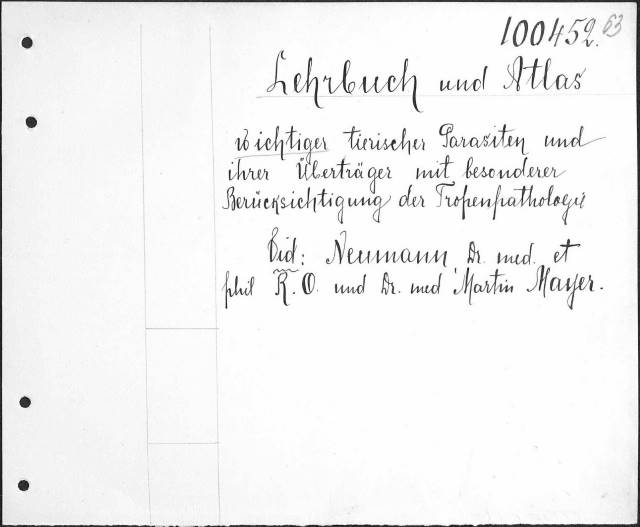 100452. 63
Lehrbuch und Atlas
wichtiger tierischer Parasiten und
ihrer Überträger mit besonderer
Berücksichtigung der Tropenpathologie
Vid: Neumann Dr. med. et
phil R. O. und Dr. med Martin Mayer.